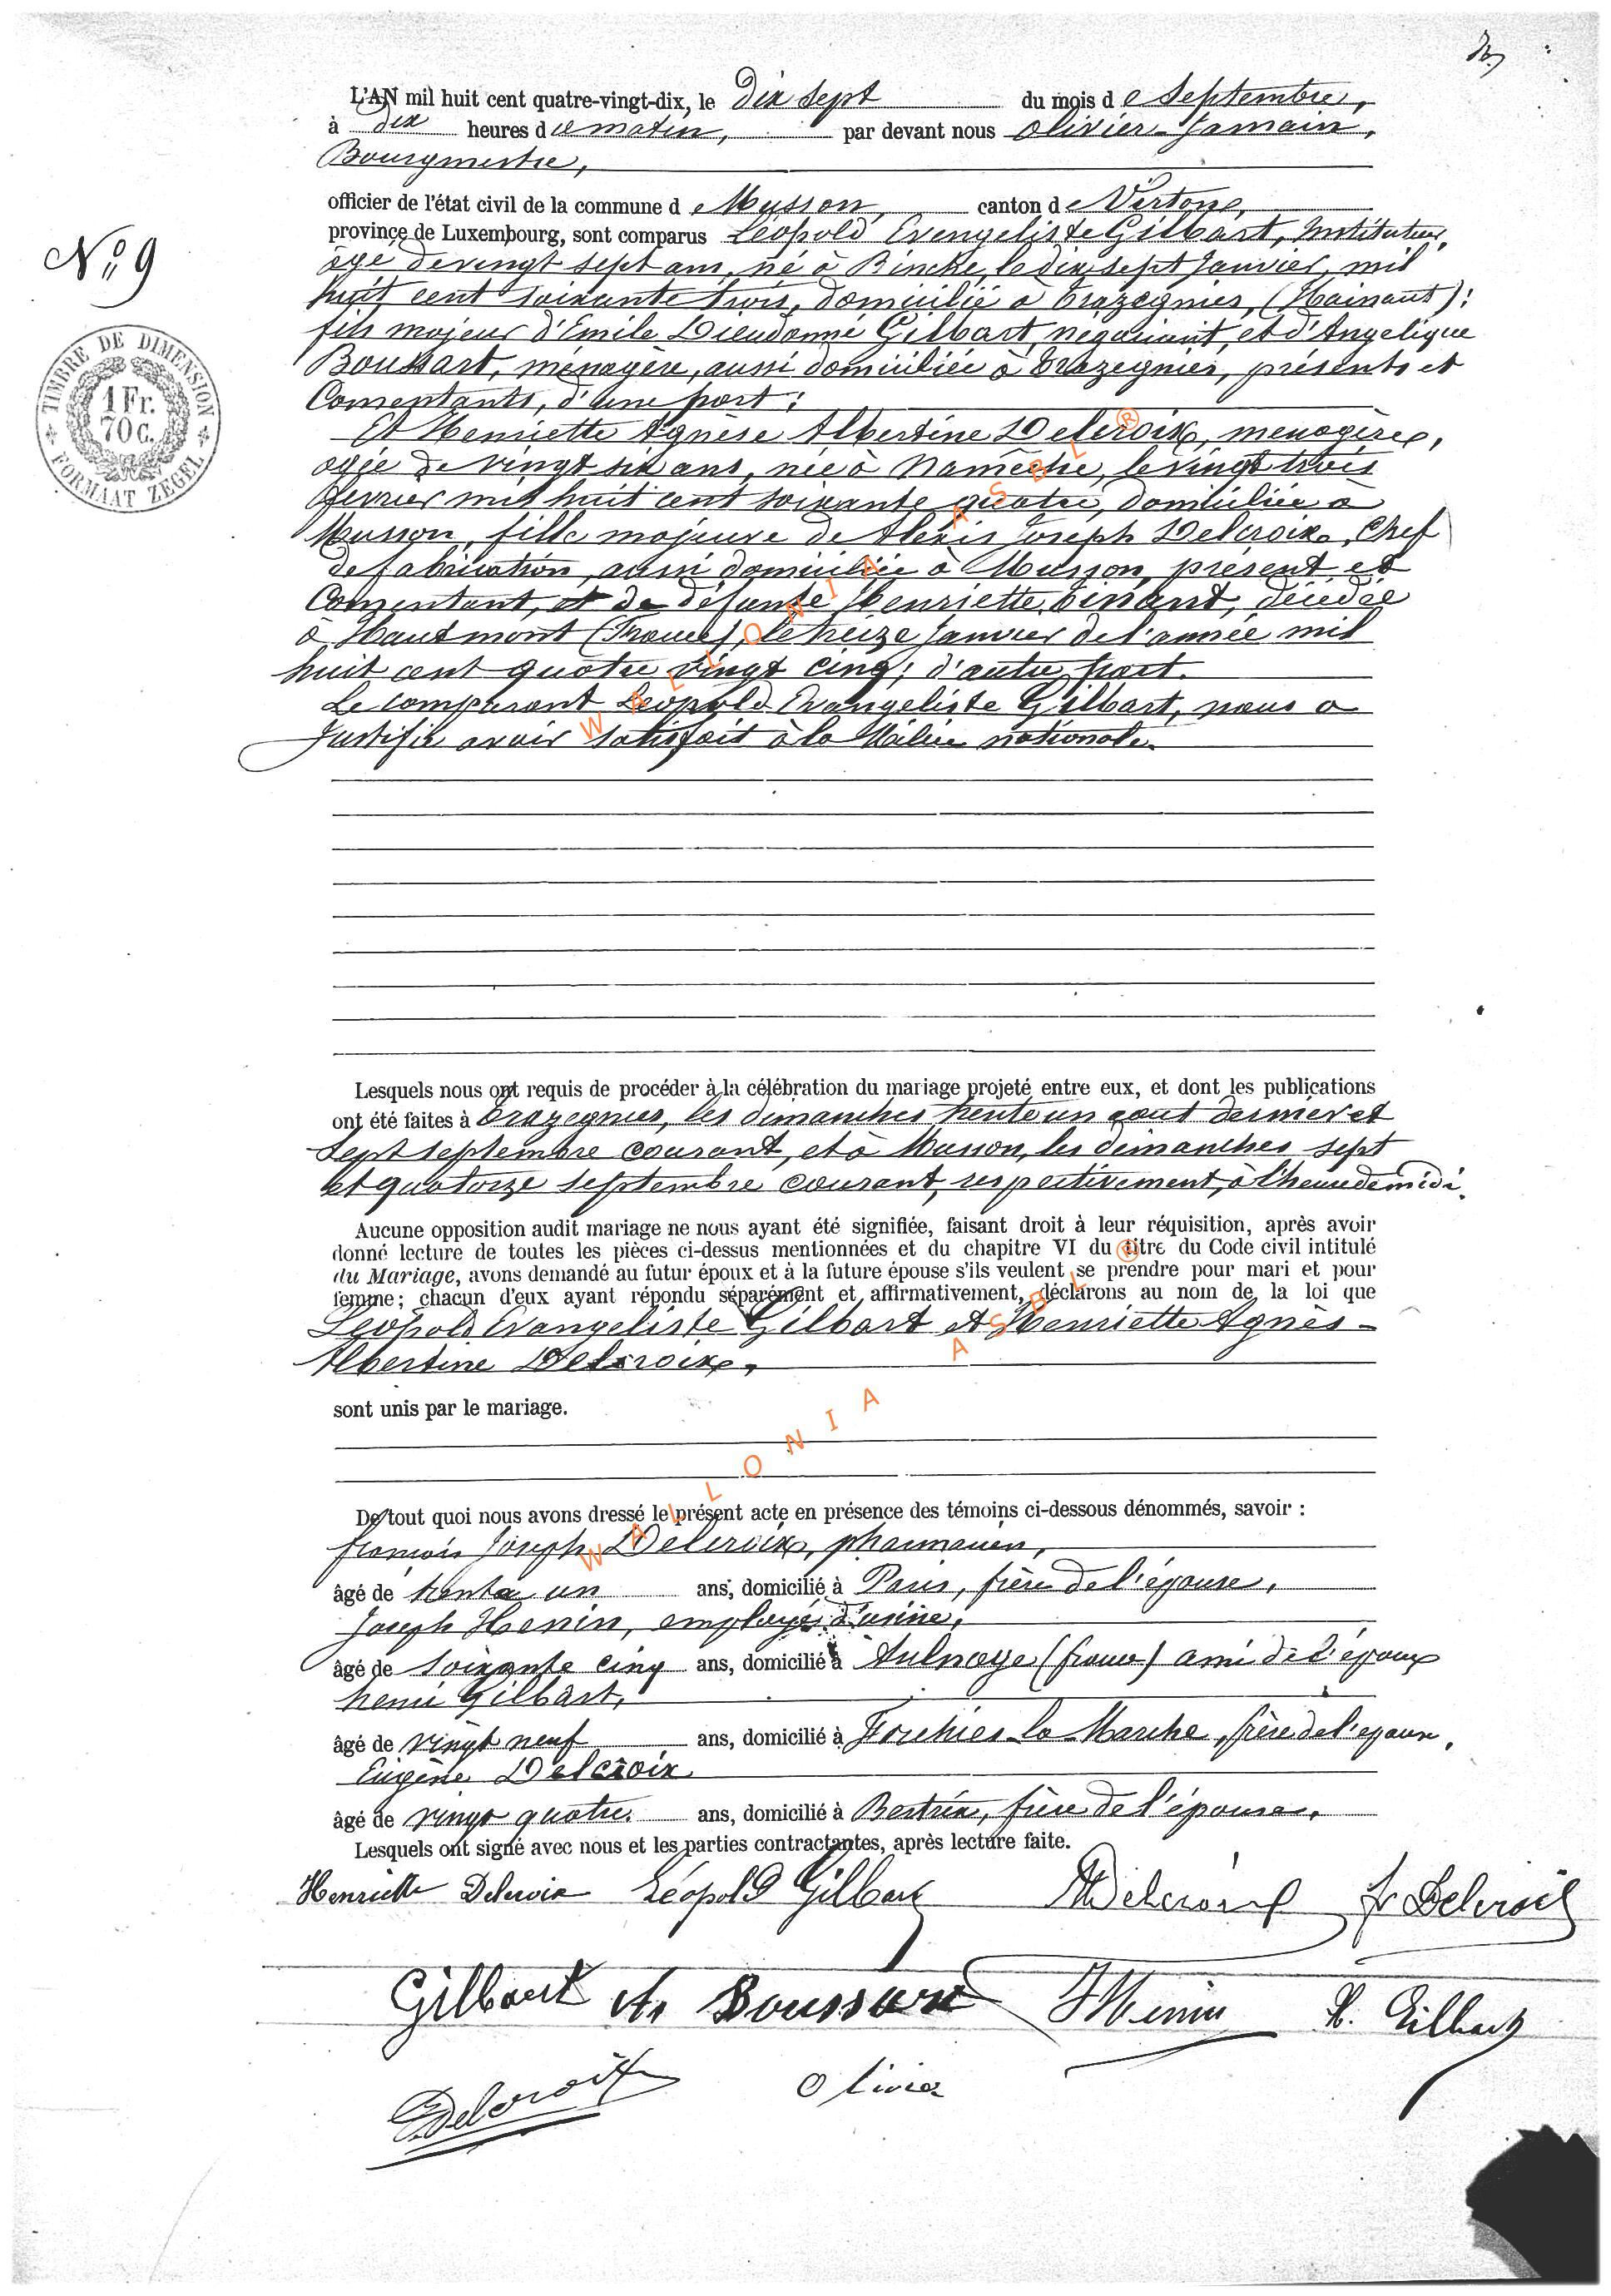 L'AN mil huit cent quatre-vingt-dix, le dix sept du mois de Septembre,
à dix heures du matin, par devant nous Olivier Jamain,
Bourgmestre,
officier de l'état civil de la commune de Musson, canton de Virton,
province de Luxembourg, sont comparus Léopold Evengeliste Gilbart, Instituteur,
N° 9
âgé de vingt sept ans, né à Binche, le dix sept Janvier, mil
huit cent soixante trois, domicilié à Trazegnies, (Hainaut);
fils majeur d'Emile Dieudonné Gilbart, négociant, et d'Angelique
Boussart, ménagère, aussi domiciliée à Trazegnies, présents et
Consentants, d'une part;
TIMBRE DE DIMENSION
1 Fr.
70 c.
FORMAAT ZEGEL
Et Henriette Agnèse Albertine Delcroix, ménagère,
agée de vingt six ans, née à Namêche, le vingt trois
fevrier mil huit cent soixante quatre, domiciliée à
Musson, fille majeure de Alexis Joseph Delcroix, Chef
de fabrication, aussi domiciliée à Musson, présent et
Consentant, et de défunte Henriette, décédée
à Hautmont (France), le treize Janvier de l'année mil
huit cent quatre vingt cinq; d'autre part.
Le comparant Léopold Evangeliste Gilbart, nous a
Justifié avoir satisfait à la Milice nationale.
WALLONIA ASBL ®
Lesquels nous ont requis de procéder à la célébration du mariage projeté entre eux, et dont les publications
ont été faites à Trazegnies, les dimanches trente un aout dernier et
Sept septembre courant, et à Musson, les dimanches sept
et quatorze septembre courant, respectivement, à l'heure de midi.
Aucune opposition audit mariage ne nous ayant été signifiée, faisant droit à leur réquisition, après avoir
donné lecture de toutes les pièces ci-dessus mentionnées et du chapitre VI du titre du Code civil intitulé
du Mariage, avons demandé au futur époux et à la future épouse s'ils veulent se prendre pour mari et pour
femme; chacun d'eux ayant répondu séparément et affirmativement, déclarons au nom de la loi que
Léopold Evangeliste Gilbart et Henriette Agnès-
Albertine Delcroix,
sont unis par le mariage.
WALLONIA ASBL ®
De tout quoi nous avons dressé le présent acte en présence des témoins ci-dessous dénommés, savoir :
françois Joseph Delcroix, pharmacien,
âgé de trente un ans, domicilié à Paris, frère de l'épouse,
Joseph Henin, employé d'usine,
âgé de soixante cinq ans, domicilié à Aulnoye (france) ami de l'époux
henri Gilbart,
âgé de vingt neuf ans, domicilié à Forchies-la-Marche, frère de l'epoux,
Eugène Delcroix
âgé de vingt quatre ans, domicilié à Bertrix, frère de l'épouse,
Lesquels ont signé avec nous et les parties contractantes, après lecture faite.
Henriette Delcroix Léopold Gilbart ADelcroix fr Delcroix
Gilbart A. Boussart JHenin H. Gilbart
EDelcroix Olivier